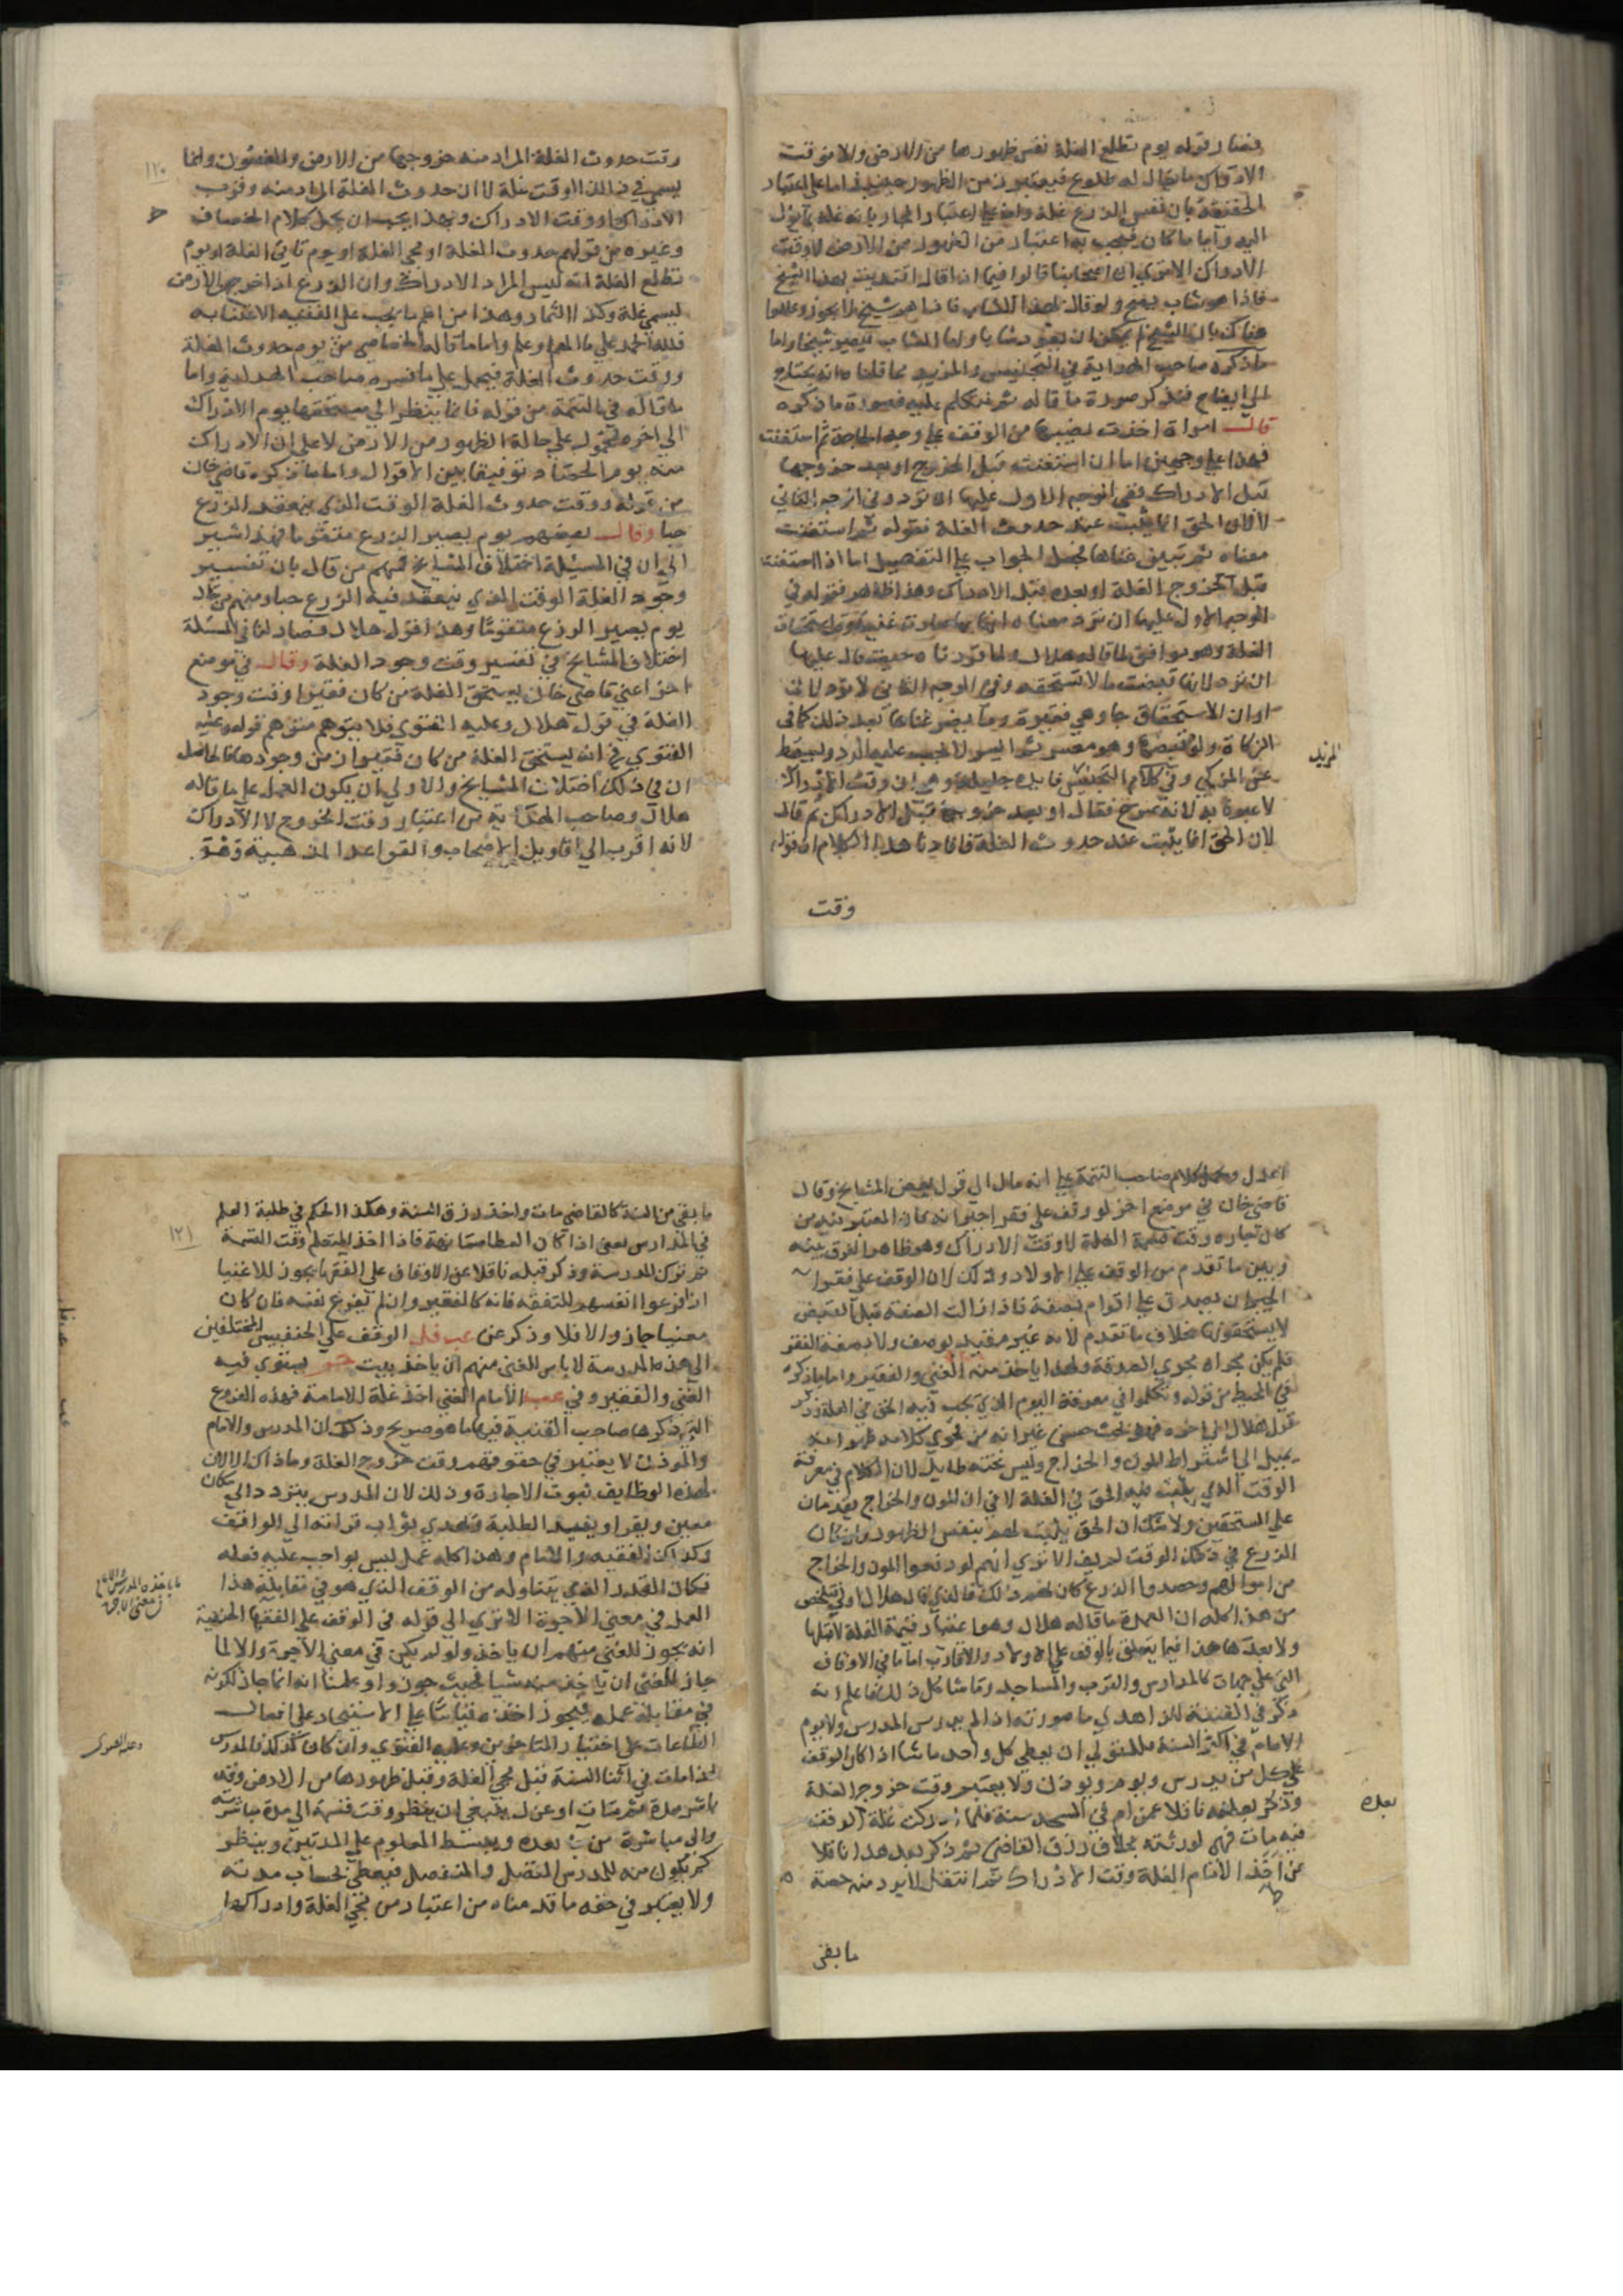 فصار قوله يوم تطلع الغلة نفس ظهورها من الارض والا فوقت
الادراك ما يقال له طلوع فيعتبر من الظهور حينئذ اما على اعتبار
الحقيقة بان نفس الزرع غلة واما على اعتبار المجاز بانه غلة بما يؤل
اليه وايا ما كان فيجب به اعتبار من الظهور من الارض لا وقت
الادراك الا ترى ان اصحابنا قالوا فيما اذا قال اقتديت بهذا الشيخ
فاذا هو شاب يصح ولو قال بهذا الشاب فاذا هو شيخ لا يجوز وعللوا
هناك بان الشيخ لم يمكن ان يعود شابا واما الشاب فيصير شيخا واما
ما ذكره صاحب الهداية في التجنيس والمزيد مما قلنا انه يحتاج
الى ايضاح فنذكر صورة ما قاله ثم نتكلم عليه فصورة ما ذكره
قال امراة اخذت نصيبها من الوقف على وجه الحاجة ثم استغنت
فهذا على وجهين اما ان استغنت قبل الخروج او بعد خروجها
قبل الادراك ففي الوجه الاول عليها ان ترد وفي الوجه الثاني
لا لان الحق انما يثبت عند حدوث الغلة فقوله ثم استغنت
معناه ثم تبين غناها فجعل الجواب على التفصيل اما اذا استغنت
قبل خروج الغلة او بعده قبل الادراك وهذا ظاهر فقوله في
الوجه الاول عليها ان ترد معناه انها صارت غنية وقت استحقاق
الغلة وهو موافق لما قاله هلال ولما قررناه حيث قال عليها
ان ترد لانها قبضت ما لا تستحقه وفي الوجه الثاني لا ترد لان
اوان الاستحقاق جا وهي فقيرة وما يضر غناها بعد ذلك كما في
الزكاة ولو قبضها وهو معسر ثم ايسر لا يجب عليه الرد ويسقط
عن المزكي وفي كلام التجنيس فايدة جليلة وهي ان وقت الادراك
لا عبرة به لانه صرح فقال او بعد خروجها قبل الادراك ثم قال
لان الحق انما يثبت عند حدوث الغلة فافادنا هذا الكلام ان قوله
وقت
المزيد
١٢٠
وقت حدوث الغلة المراد منه خروجها من الارض والغصون وانما
يسمى في ذلك الوقت غلة لا ان حدوث الغلة المراد منه وقرب
الادراك او وقت الادراك وبهذا يجب ان يحمل كلام الخصاف
وغيره من قولهم حدوث الغلة او مجي الغلة او يوم تاتي الغلة او يوم
تطلع الغلة انه ليس المراد الادراك وان الزرع اذا خرج من الارض
ليسمى غلة وكذا الثمار وهذا من اهم ما يجب على الفقيه الاعتنا به
فلله الحمد على ما الهم وعلم واما ما قاله الخاصي من يوم حدوث الغلة
ووقت حدوث الغلة فيحمل على ما فسره صاحب الهداية واما
ما قاله في التتمة من قوله فانما ينظر الى مستحقها يوم الادراك
الى اخره محمول على حالة الظهور من الارض لا على ان الادراك
منه يوم الحصاد توفيقا بين الاقوال واما ما ذكره قاضي خان
من قوله ووقت حدوث الغلة الوقت الذي ينعقد الزرع
حبا وقال بعضهم يوم يصير الزرع متقوما فهذا اشير
الى ان في المسيلة اختلاف المشايخ فمنهم من قال بان تفسير
وجود الغلة الوقت الذي ينعقد فيه الزرع حبا ومنهم من قال
يوم يصير الزرع متقوما وهذا قول هلال فصار لنا في المسئلة
اختلاف المشايخ في تفسير وقت وجود الغلة وقال في موضع
اخر اعني قاضي خان يستحق الغلة من كان فقيرا وقت وجود
الغلة في قول هلال وعليه الفتوى فلا يتوهم متوهم قوله وعليه
الفتوى في انه يستحق الغلة من كان فقيرا من وجودها فالحاصل
ان في ذلك اختلاف المشايخ والاولى ان يكون العمل على ما قاله
هلال وصاحب الهداية من اعتبار وقت الخروج لا الادراك
لانه اقرب الى اقاويل الاصحاب والقواعد المذهبية
اعدل ويحمل كلام صاحب التتمة على انه مال الى قول بعض المشايخ وقال
قاضي خان في موضع اخر لو وقف على فقرا جيرانه كان المعتبر فيه من
كان جاره وقت قسمة الغلة لا وقت الادراك وهو ظاهر الفرق بينه
وبين ما تقدم من الوقف على الاولاد وذلك لان الوقف على فقرا
الجيران يصدق على اقوام بصفة فاذا زالت الصفة قبل القبض
لا يستحقون بخلاف ما تقدم لانه غير مقيد بوصف ولا بصفة الفقر
فلم يكن مجراه مجرى الصدقة ولهذا ياخذ منه الغني والفقير واما ما ذكره
في المحيط من قوله وتكلموا في معرفة اليوم الذي يجب فيه الحق في الغلة
قول هلال الى اخره فهو بحث حسن غير انه من فحوى كلامه
يميل الى اشتراط المؤن والخراج وليس تحته طايل لان الكلام في معرفة
الوقت الذي يثبت فيه الحق في الغلة لا في ان المون والخراج يقدمان
على المستحقين ولا شك ان الحق يثبت لهم بنفس الظهور وان كان
الزرع في ذلك الوقت الا ترى انهم لو دفعوا المون والخراج
من اموالهم وحصدوا الزرع كان لهم ذلك فالذي قاله هلال
من هذا كله ان العمدة ما قاله هلال وهو اعتبار قيمة الغلة لا قبلها
ولا بعدها هذا فيما يتعلق بالوقف على الاولاد والاقارب اما ما في الاوقاف
التي على جهات كالمدارس والترب والمساجد وما شاكل ذلك فاعلم انه
ذكر في القنية للزاهدي ما صورته اذا لم يدرس المدرس ولا يوم
الامام في اكثر السنة للمتولي ان يعطي كل واحد ما شا اذا كان الوقف
على كل من يدرس ويوم ويوذن ولا يعتبر وقت خروج الغلة
وذكر بعده ناقلا عمن ام في المسجد سنة فلما ادركت غلة الوقف
فيه مات فهي لورثته بخلاف رزق القاضي ثم ذكر بعد هذا ناقلا
عن اخذ الامام الغلة وقت الادراك ثم انتقل لا يرد منه حصة
ما بقي
بعده
١٢١
ما بقي من السنة كالقاضي مات واخذ رزق السنة وهكذا الحكم في طلبة العلم
في المدارس يعني اذا كان العطا مسانهة فاذا اخذ المتعلم وقت القسمة
ثم ترك المدرسة وذكر قبله ناقلا عن الاوقاف على الفقها يجوز للاغنيا
اذا فرغوا انفسهم للتفقه فانه كالفقير وان لم يفرغ نفسه فان كان
معنيا جاز والا فلا وذكر عن الوقف على الحنفيين المختلفين
الى هذه المدرسة لا باس للغني منهم ان ياخذ يستوي فيه
الغني والفقير وفي الامام الغني اخذ غلة للامامة فهذه الفروع
التي ذكرها صاحب القنية فيها ما هو صريح وذلك ان المدرس والامام
والموذن لا يعتبر في حقوقهم وقت خروج الغلة وما ذاك الا لان
لهذه الوظايف ثبوت الاجارة وذلك لان المدرس يتردد الى مكان
معين ويقرا ويفيد الطلبة ويهدي ثواب قراته الى الواقف
وكذلك الفقيه والامام وهذا كله عمل ليس بواجب عليه فعله
فكان القدر الذي يتناوله من الوقف الذي هو في مقابلة هذا
العمل في معنى الاجرة الا ترى الى قوله في الوقف على الفقها الحنفية
انه يجوز للغني منهم ان ياخذ ولو لم يكن في معنى الاجرة والا لما
جاز للغني ان ياخذ منه شيا فحيث جوزوا علمنا انه انما جاز لكونه
في مقابلة عمله فيجوز اخذه قياسا على الاستيجار على افعال
الطاعات على اختيار المتاخرين وعليه الفتوى وان كان كذلك فالمدرس
اذا مات في اثنا السنة قبل مجي الغلة وقبل ظهورها من الارض وقد
باشر مدة ثم مات او عزل ينبغي ان ينظر وقت قسمة الى مدة مباشرته
والى مباشرة من بعده ويبسط المعلوم على المدتين وينظر
كم يكون منه للمدرس المنفصل والمتصل فيعطى بحساب مدته
ولا يعتبر في حقه ما قدمناه من اعتبار من مجي الغلة وادراكها
ما ياخذه المدرس والامام
في معنى الاجرة